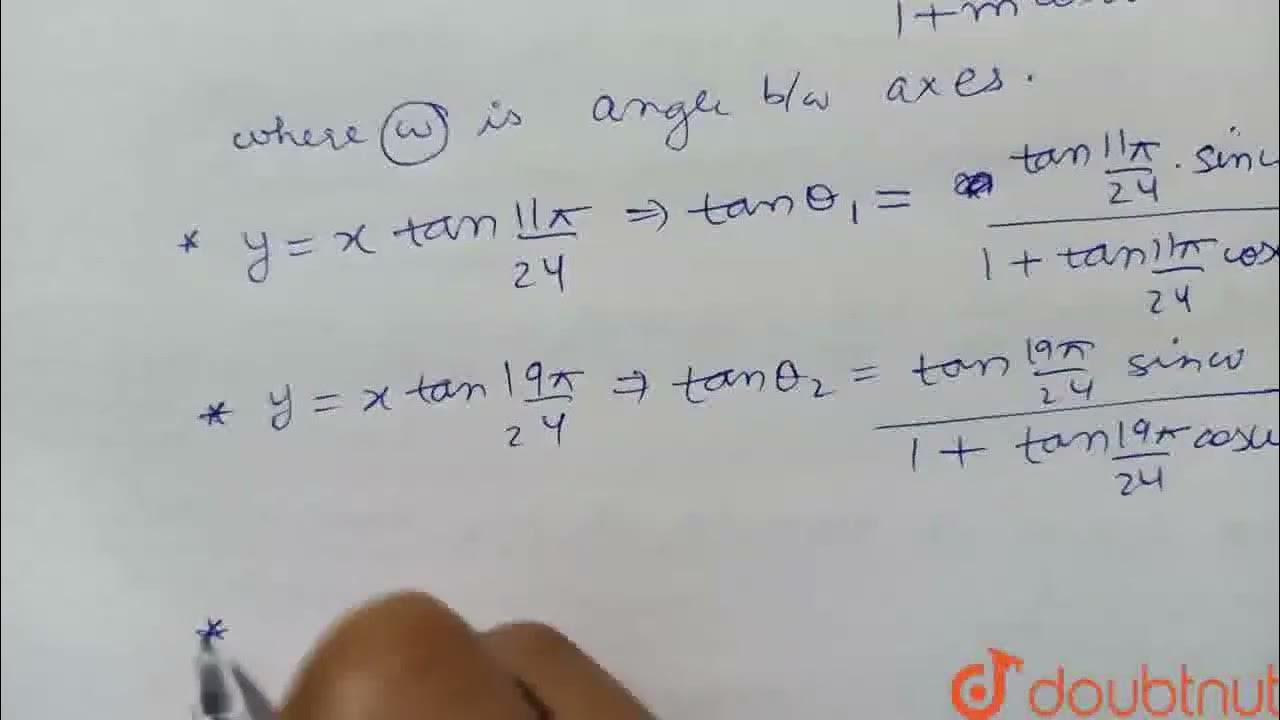 1 + m
where ω is angle b/w axes.
* y = x tan 11π/24 ⇒ tanθ₁ = tan 11π/24 . sinω
1 + tan 11π/24 cos
* y = x tan 19π/24 ⇒ tanθ₂ = tan 19π/24 sinω
1 + tan 19π/24 cosω
*
doubtnut